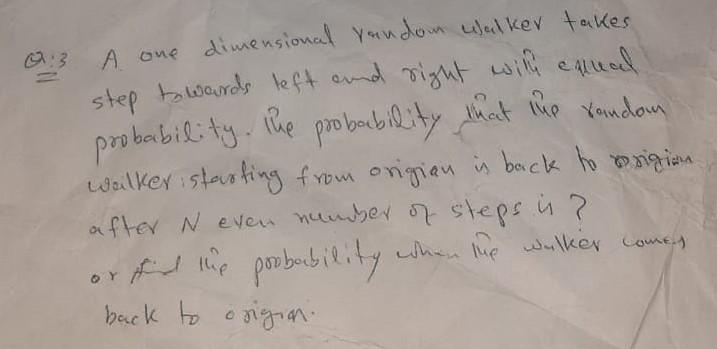 Q:3 A one dimensional random walker takes
step towards left and right with equal
probability. The probability that the random
walker starting from origien is back to origien
after N even number of steps is ?
or find the probability when the walker comes
back to origin.